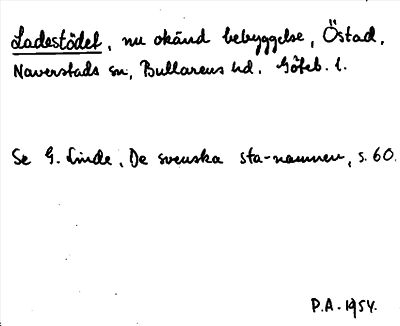 Ladestödet, nu okänd bebyggelse, Östad,
Naverstads sn, Bullarens hd. Göteb. l.
Se G. Linde, De svenska sta-namnen, s. 60.
P.A. 1954.